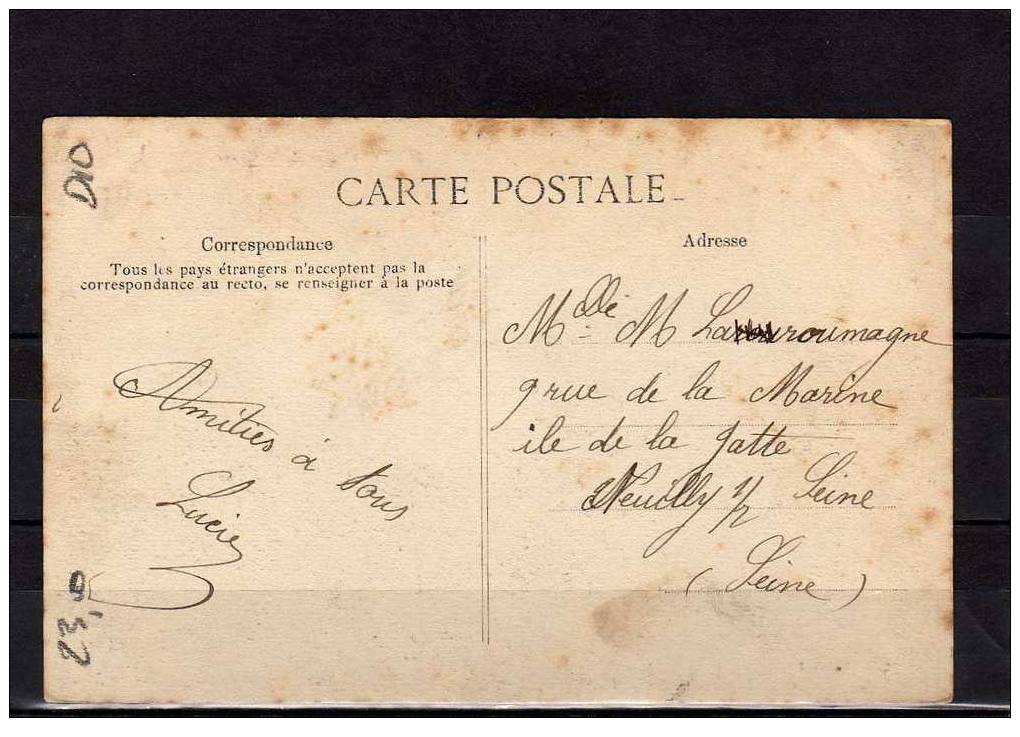 CARTE POSTALE
Correspondance
Tous les pays étrangers n'acceptent pas la
correspondance au recto, se renseigner à la poste
Amitiés à tous
Lucie
Adresse
Mdlle M Laroumagne
9 rue de la Marine
ile de la Jatte
Neuilly s/ Seine
(Seine)
D10
23,0